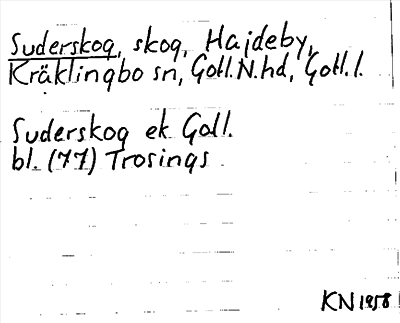 Suderskog, skog, Hajdeby,
Kräklingbo sn, Gotl. N. hd, Gotl. l.
Suderskog ek Gotl.
bl. (77) Trosings
KN 1958